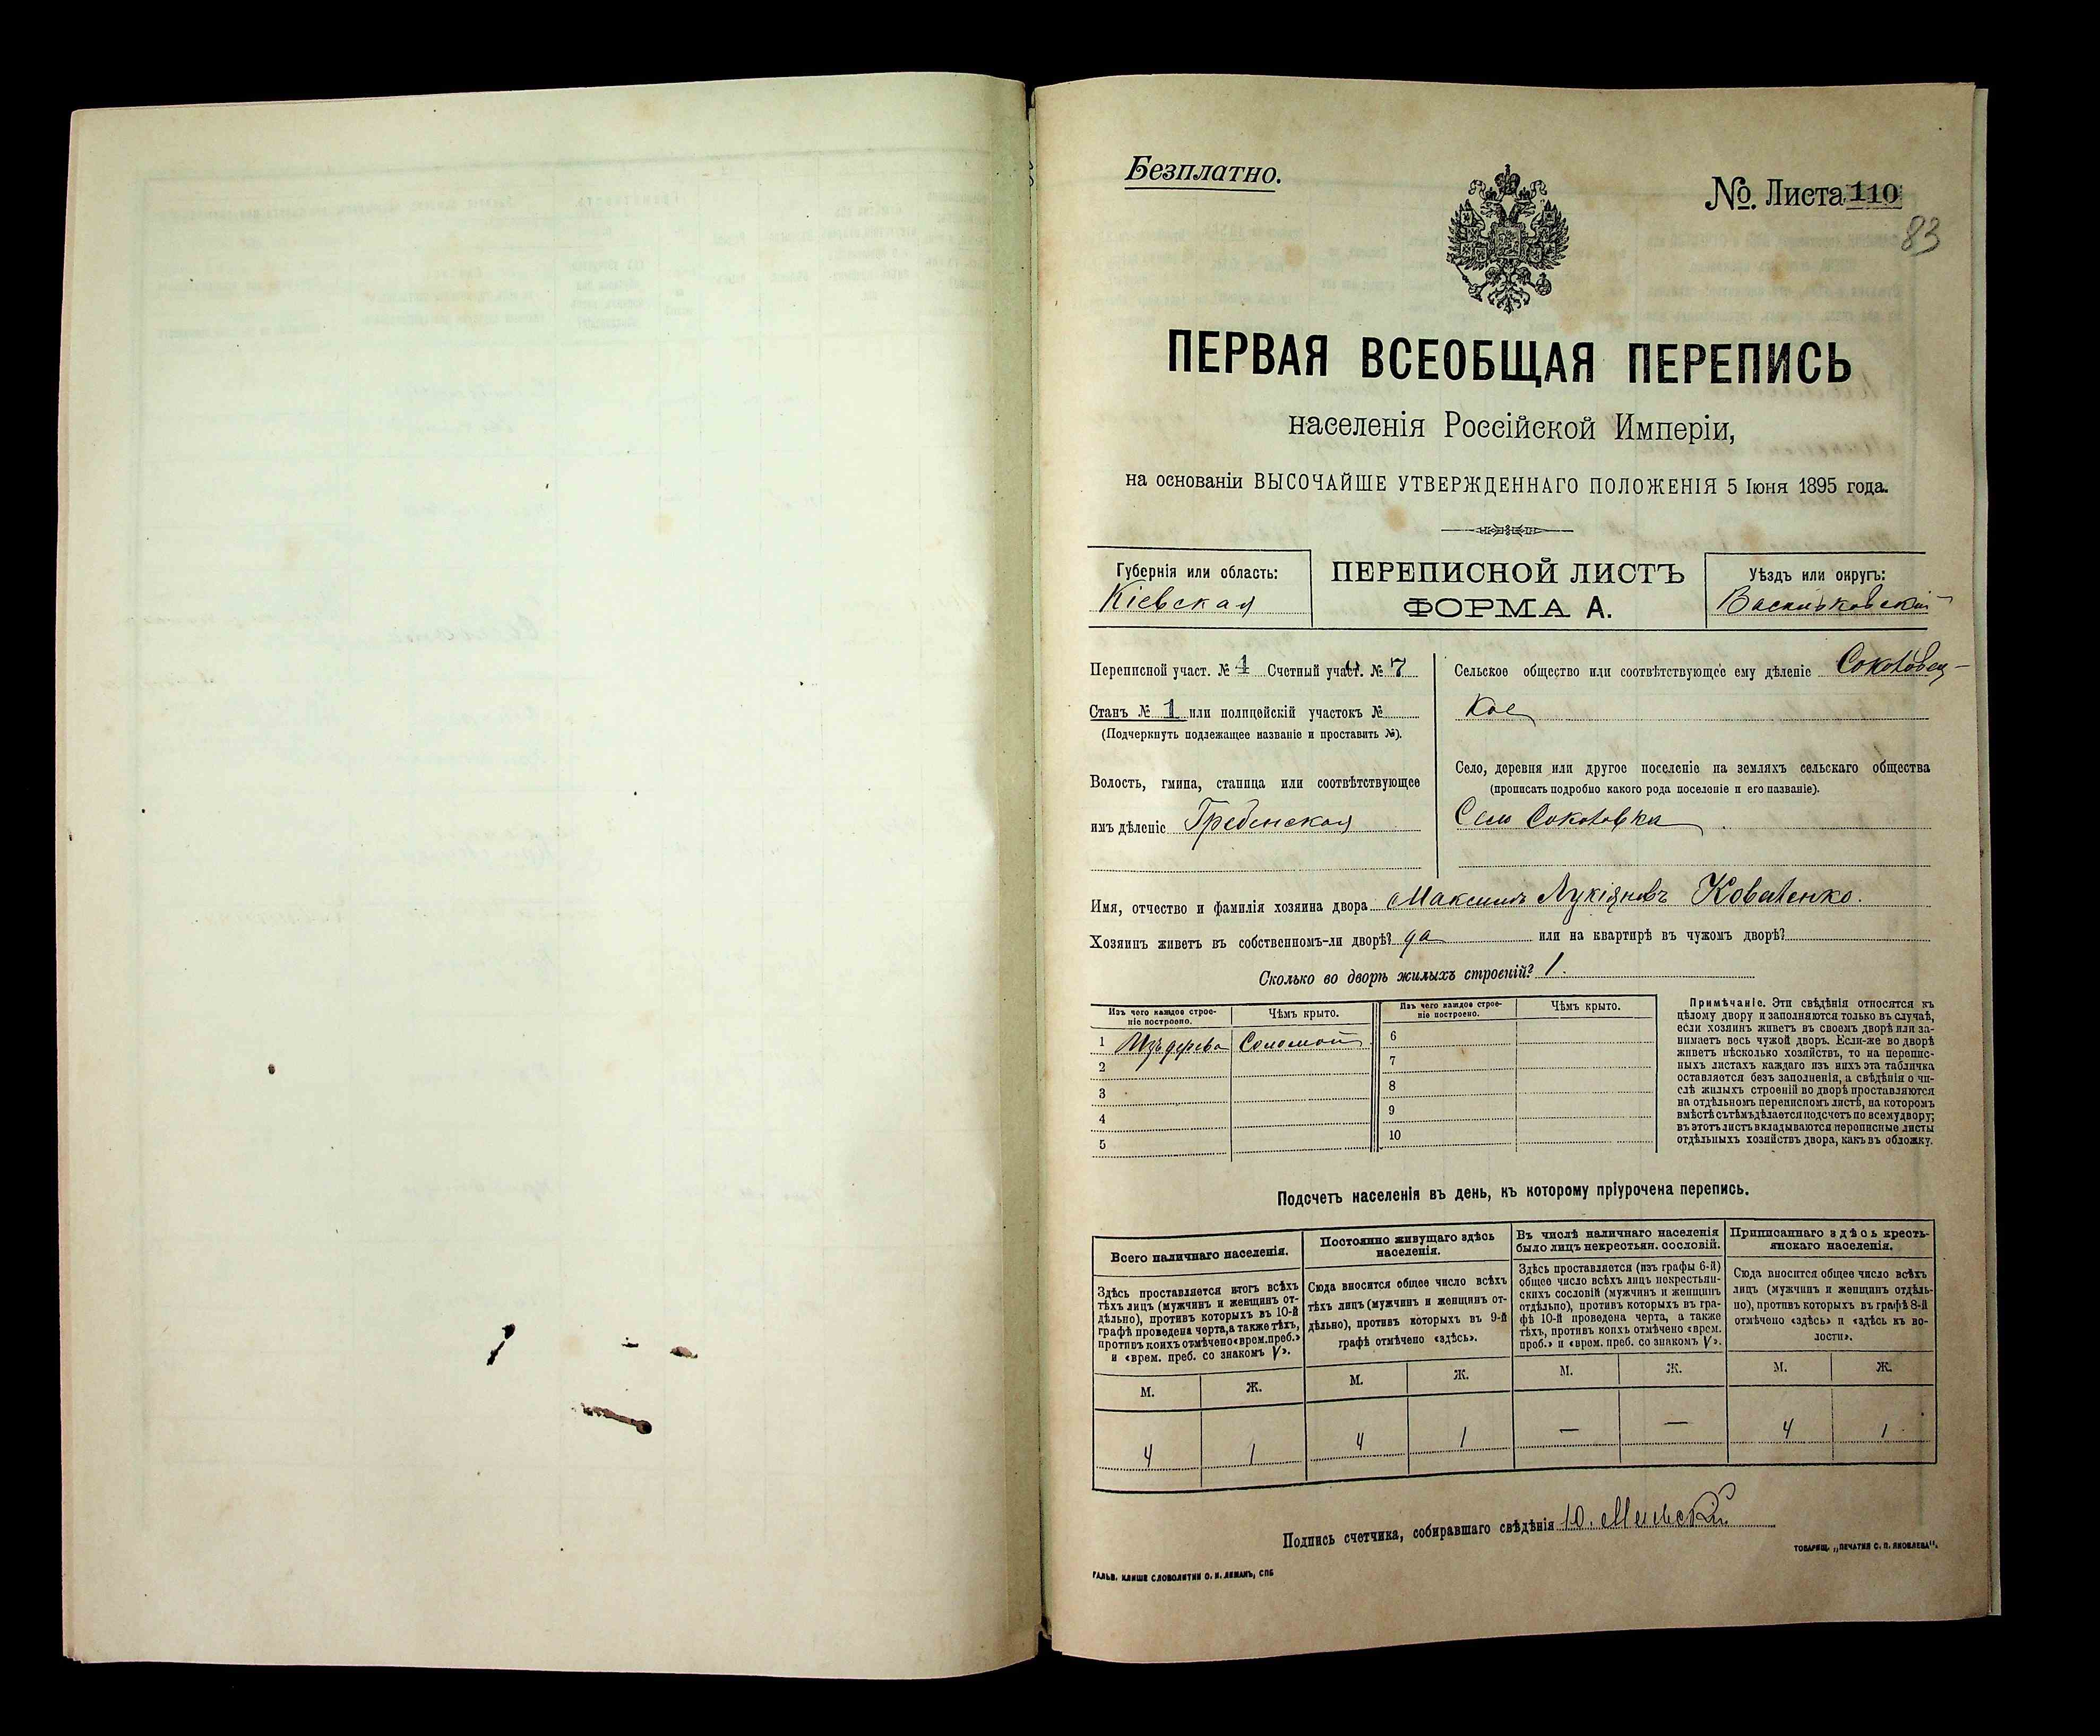 Безплатно.
№. Листа 110
83
ПЕРВАЯ ВСЕОБЩАЯ ПЕРЕПИСЬ
населенія Россійской Имперіи,
на основаніи ВЫСОЧАЙШЕ УТВЕРЖДЕННАГО ПОЛОЖЕНІЯ 5 Іюня 1895 года.
Губернія или область:
Кіевская
ПЕРЕПИСНОЙ ЛИСТЪ
ФОРМА А.
Уѣздъ или округъ:
Васильковскій
Переписной участ. № 4 Счетный участ. № 7
Станъ № 1 или полицейскій участокъ №
(Подчеркнуть подлежащее названіе и проставить №).
Волость, гмина, станица или соотвѣтствующее
имъ дѣленіе Гребенская
Сельское общество или соотвѣтствующее ему дѣленіе Соколовец-
кое
Село, деревня или другое поселеніе на земляхъ сельскаго общества
(прописать подробно какого рода поселеніе и его названіе).
Село Соколовка
Имя, отчество и фамилія хозяина двора Максимъ Лукіяновъ Коваленко.
Хозяинъ живетъ въ собственномъ-ли дворѣ? да или на квартирѣ въ чужомъ дворѣ?
Сколько во дворѣ жилыхъ строеній? 1.
Изъ чего каждое строе-
ніе построено.
Чѣмъ крыто.
1 Изъ дерева Соломой
2
3
4
5
Изъ чего каждое строе-
ніе построено.
Чѣмъ крыто.
6
7
8
9
10
Примѣчаніе. Эти свѣдѣнія относятся къ
цѣлому двору и заполняются только въ случаѣ,
если хозяинъ живетъ въ своемъ дворѣ или за-
нимаетъ весь чужой дворъ. Если-же во дворѣ
живетъ нѣсколько хозяйствъ, то на перепис-
ныхъ листахъ каждаго изъ нихъ эта табличка
оставляется безъ заполненія, а свѣдѣнія о чи-
слѣ жилыхъ строеній во дворѣ проставляются
на отдѣльномъ переписномъ листѣ, на которомъ
вмѣстѣ съ тѣмъ дѣлается подсчетъ по всему двору;
въ этотъ листъ вкладываются переписные листы
отдѣльныхъ хозяйствъ двора, какъ въ обложку.
Подсчетъ населенія въ день, къ которому пріурочена перепись.
Всего наличнаго населенія.
Здѣсь проставляется итогъ всѣхъ
тѣхъ лицъ (мужчинъ и женщинъ от-
дѣльно), противъ которыхъ въ 10-й
графѣ проведена черта, а также тѣхъ,
противъ коихъ отмѣчено «врем. преб.»
и «врем. преб. со знакомъ V».
М. Ж.
4 1
Постоянно живущаго здѣсь
населенія.
Сюда вносится общее число всѣхъ
тѣхъ лицъ (мужчинъ и женщинъ от-
дѣльно), противъ которыхъ въ 9-й
графѣ отмѣчено «здѣсь».
М. Ж.
4 1
Въ числѣ наличнаго населенія
было лицъ некрестьян. сословій.
Здѣсь проставляется (изъ графы 6-й)
общее число всѣхъ лицъ некрестьян-
скихъ сословій (мужчинъ и женщинъ
отдѣльно), противъ которыхъ въ гра-
фѣ 10-й проведена черта, а также
тѣхъ, противъ коихъ отмѣчено «врем.
преб.» и «врем. преб. со знакомъ V».
М. Ж.
— —
Приписаннаго здѣсь кресть-
янскаго населенія.
Сюда вносится общее число всѣхъ
лицъ (мужчинъ и женщинъ отдѣль-
но), противъ которыхъ въ графѣ 8-й
отмѣчено «здѣсь» и «здѣсь въ во-
лости».
М. Ж.
4 1
Подпись счетчика, собиравшаго свѣдѣнія Ю.
ГАЛЬВ. КЛИШЕ СЛОВОЛИТНИ О. И. ЛЕМАНЪ, СПБ
ТОВАРИЩ. „ПЕЧАТНЯ С. П. ЯКОВЛЕВА".